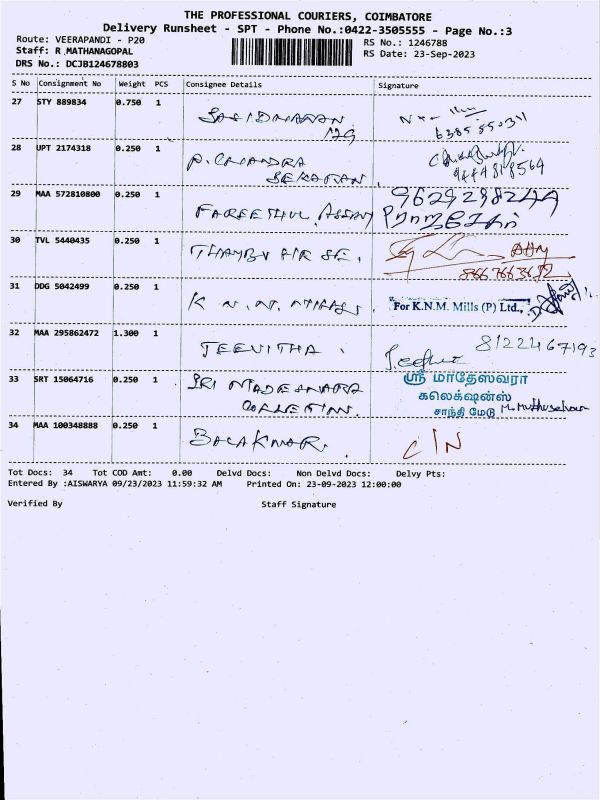 THE PROFESSIONAL COURIERS, COIMBATORE
Delivery Runsheet - SPT - Phone No.:0422-3505555 - Page No.:3
Route: VEERAPANDI - P20 RS No.: 1246788
Staff: R.MATHANAGOPAL RS Date: 23-Sep-2023
DRS No.: DCJB124678803
S No Consignment No Weight PCS Consignee Details Signature
27 STY 889834 0.750 1
28 UPT 2174318 0.250 1 P. CHANDRA
SEKARAN
29 MAA 572810800 0.250 1 9629298244
FAREETHUL
30 TVL 5440435 0.250 1
31 DDG 5042499 0.250 1 K N. N. MILLS For K.N.M. Mills (P) Ltd.,
32 MAA 295862472 1.300 1 JEEVITHA . 8122467193
33 SRT 15064716 0.250 1 SRI MADESWARA ஸ்ரீ மாதேஸ்வரா
கலெக்ஷன்ஸ்
சாந்தி மேடு
34 MAA 100348888 0.250 1 BALAKMAR. C/N
Tot Docs: 34 Tot COD Amt: 0.00 Delvd Docs: Non Delvd Docs: Delvy Pts:
Entered By :AISWARYA 09/23/2023 11:59:32 AM Printed On: 23-09-2023 12:00:00
Verified By Staff Signature